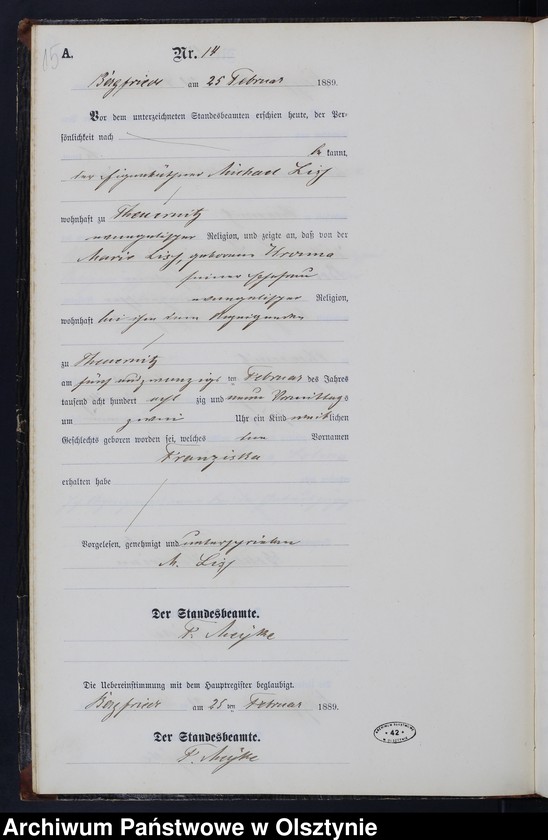 15
A. Nr. 14
Bergfriede am 25 Februar 1889.
Vor dem unterzeichneten Standesbeamten erschien heute, der Per-
sönlichkeit nach
be kannt,
der Eigenkäthner Michael Lisz
wohnhaft zu Theuernitz
evangelischer Religion, und zeigte an, daß von der
Marie Lisz, geborenen
seiner Ehefrau
evangelischer Religion,
wohnhaft bei ihm dem Anzeigenden
zu Theuernitz
am fünf und zwanzigs ten Februar des Jahres
tausend acht hundert acht zig und neun Vormittags
um zwei Uhr ein Kind weiblichen
Geschlechts geboren worden sei, welches den Vornamen
Franziska
erhalten habe
Vorgelesen, genehmigt und unterschrieben
M. Lisz
Der Standesbeamte.
Die Uebereinstimmung mit dem Hauptregister beglaubigt.
Bergfriede am 25 ten Februar 1889.
Der Standesbeamte.
42
Archiwum Państwowe w Olsztynie